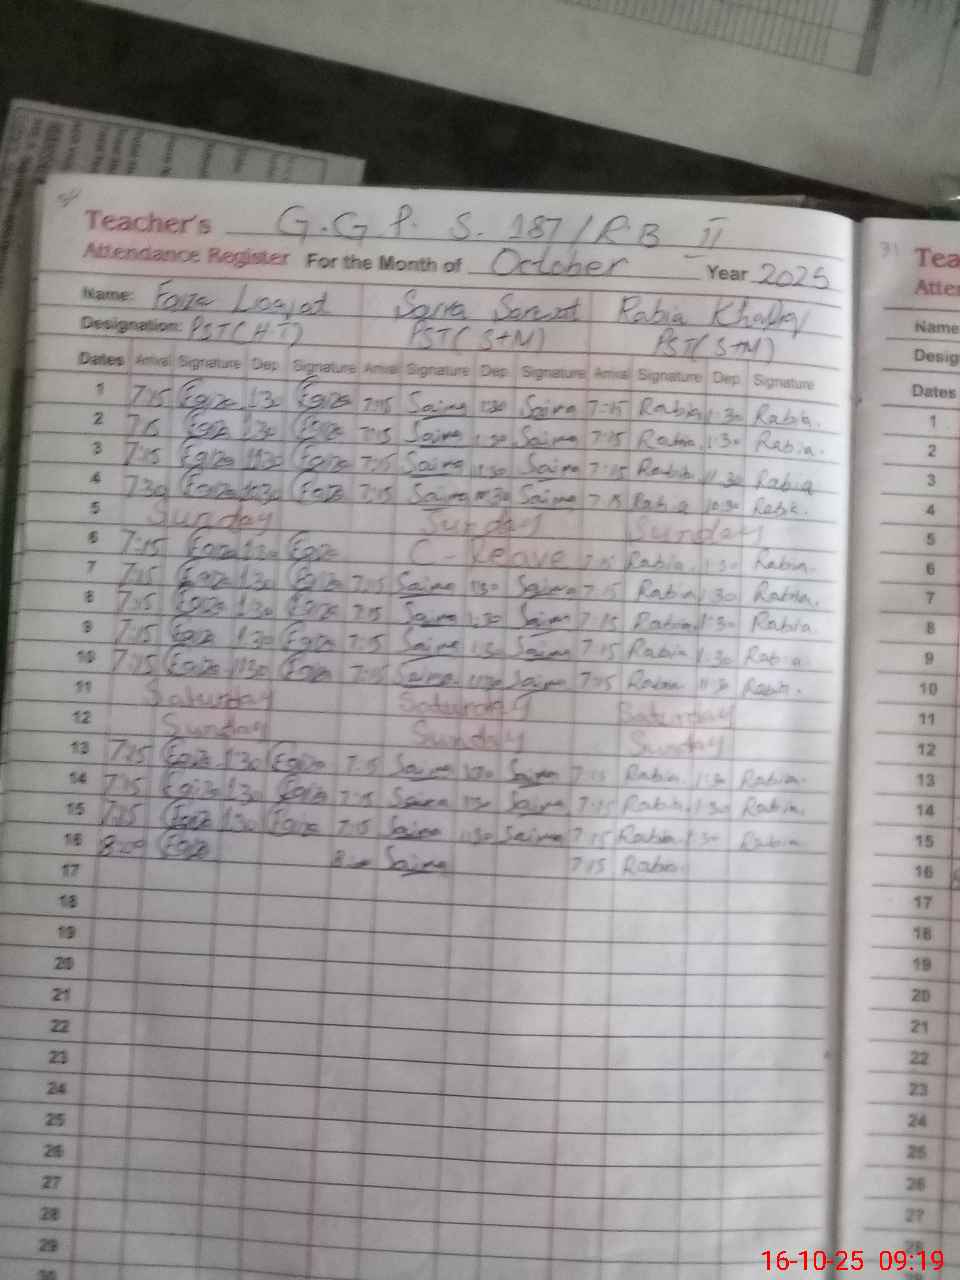 Teacher's G.G P. S. 187/R.B II
Attendance Register For the Month of October Year 2025
Name: Faiza Liaqat Saira Sarwat Rabia Khalid
Designation: PST(H.T) PST(S+M) PST(S+M)
Dates Arrival Signature Dep Signature Arrival Signature Dep Signature Arrival Signature Dep Signature
1 7:15 Faiza 1:30 Faiza 7:15 Saima 1:30 Saima 7:15 Rabia 1:30 Rabia.
2 7:15 Faiza 1:30 Faiza 7:15 Saima 1:30 Saima 7:15 Rabia 1:30 Rabia.
3 7:15 Faiza 11:30 Faiza 7:15 Saima 11:30 Saima 7:15 Rabia 11:30 Rabia
4 7:30 Faiza 10:30 Faiza 7:15 Saima 10:30 Saima 7:15 Rabia 10:30 Rabia.
5 Sunday Sunday Sunday
6 7:15 Faiza 1:30 Faiza C-Leave 7:15 Rabia. 1:30 Rabia.
7 7:15 Faiza 1:30 Faiza 7:15 Saima 1:30 Saima 7:15 Rabia 1:30 Rabia.
8 7:15 Faiza 1:30 Faiza 7:15 Saima 1:30 Saima 7:15 Rabia 1:30 Rabia.
9 7:15 Faiza 1:30 Faiza 7:15 Saima 1:30 Saima 7:15 Rabia 1:30 Rabia
10 7:15 Faiza 11:30 Faiza 7:15 Saima 11:30 Saima 7:15 Rabia 11:30 Rabia.
11 Saturday Saturday Saturday
12 Sunday Sunday Sunday
13 7:15 Faiza 1:30 Faiza 7:15 Saima 1:30 Saima 7:15 Rabia. 1:30 Rabia.
14 7:15 Faiza 1:30 Faiza 7:15 Saima 1:30 Saima 7:15 Rabia 1:30 Rabia.
15 7:15 Faiza 1:30 Faiza 7:15 Saima 1:30 Saima 7:15 Rabia 1:30 Rabia
16 8:00 Faiza 8:00 Saima 7:15 Rabia.
17
18
19
20
21
22
23
24
25
26
27
28
29
31
Tea
Atter
Name
Desig
Dates
1
2
3
4
5
6
7
8
9
10
11
12
13
14
15
16
17
18
19
20
21
22
23
24
25
26
27
28
16-10-25 09:19